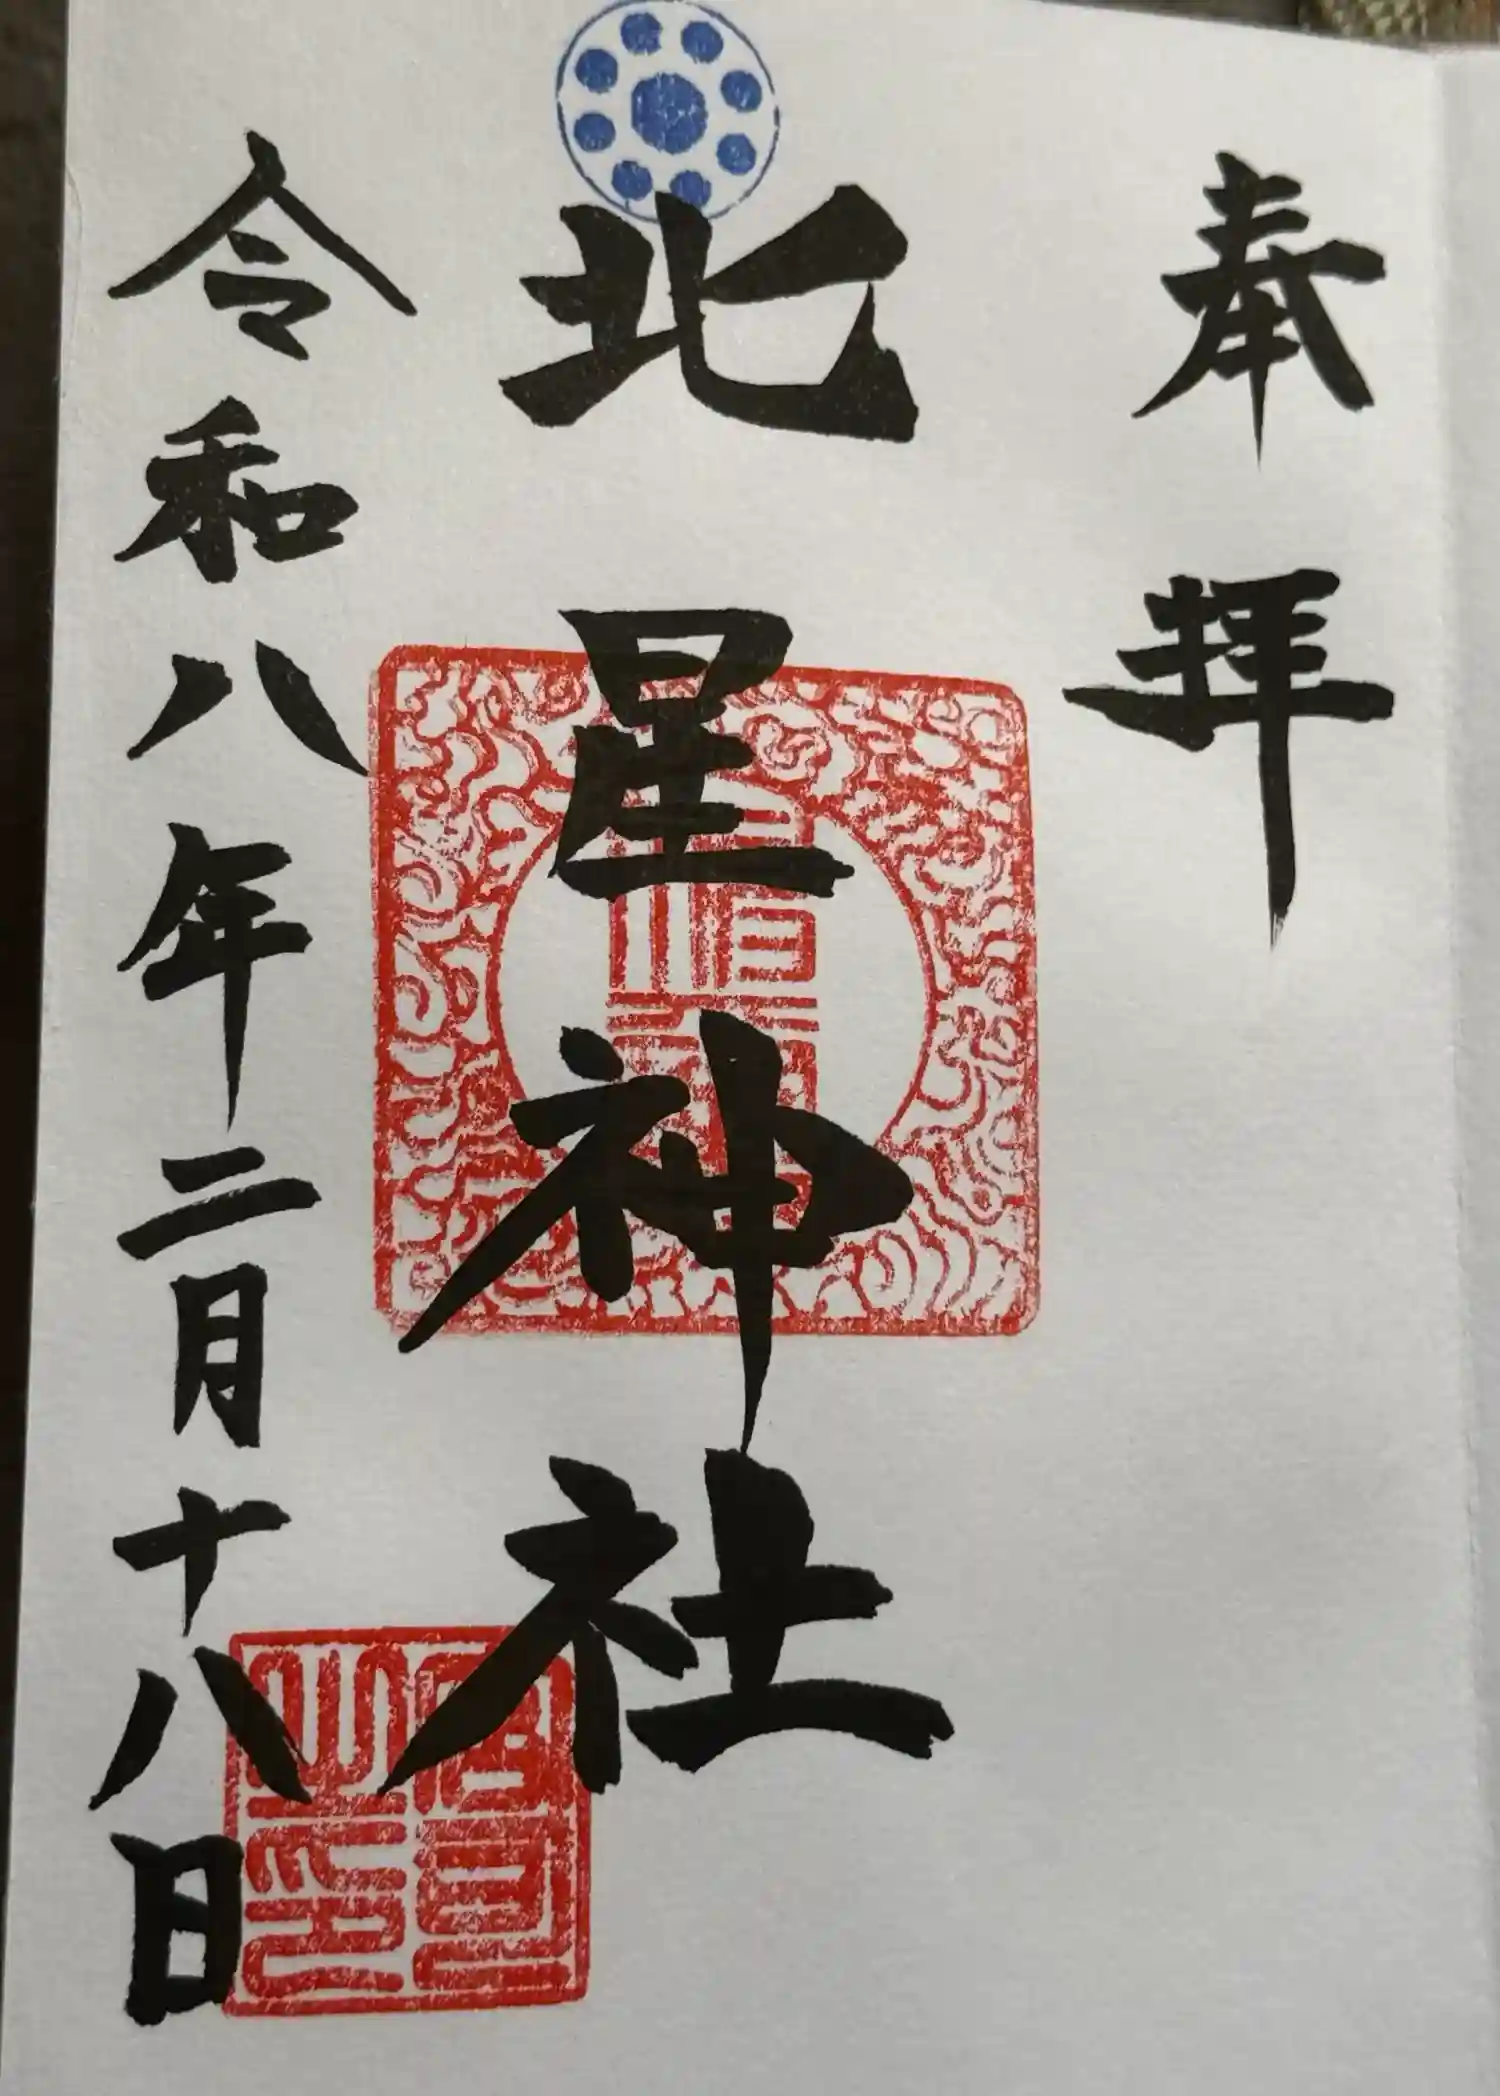 奉拝
北星神社
令和八年二月十八日